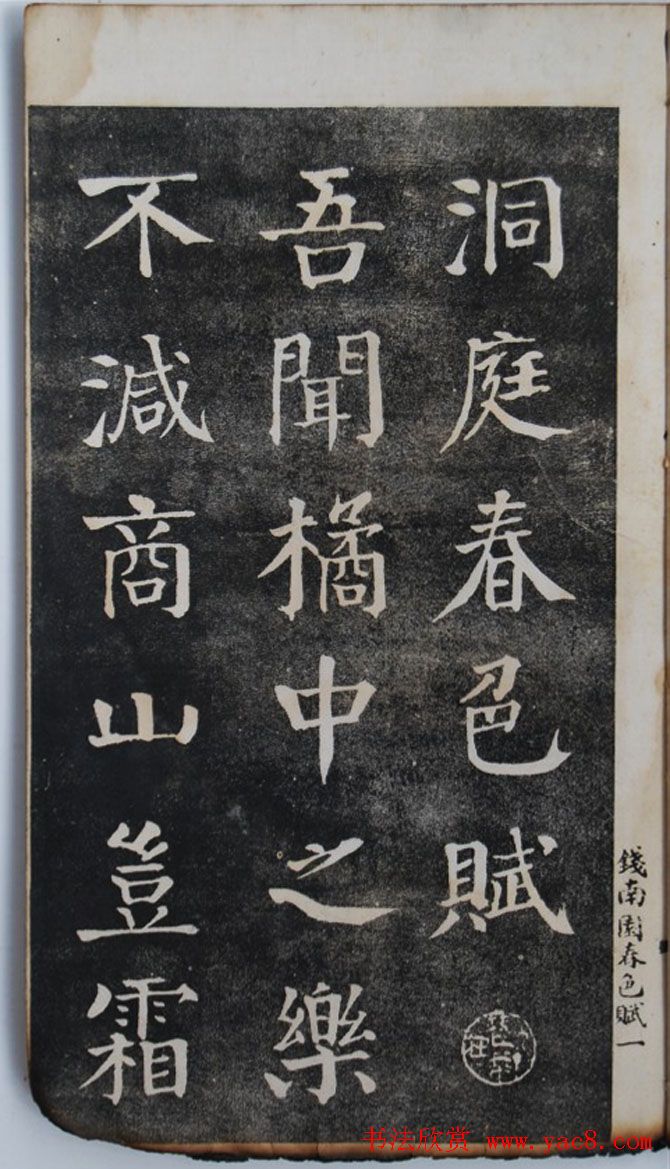 洞庭春色賦
吾聞橘中之樂
不減商山豈霜
錢南園春色賦一
书法欣赏 www.yac8.com